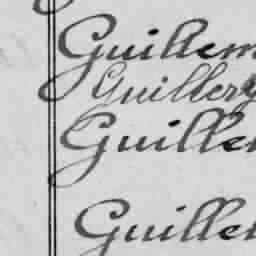 Guillem
Guillery
Guille
Guille